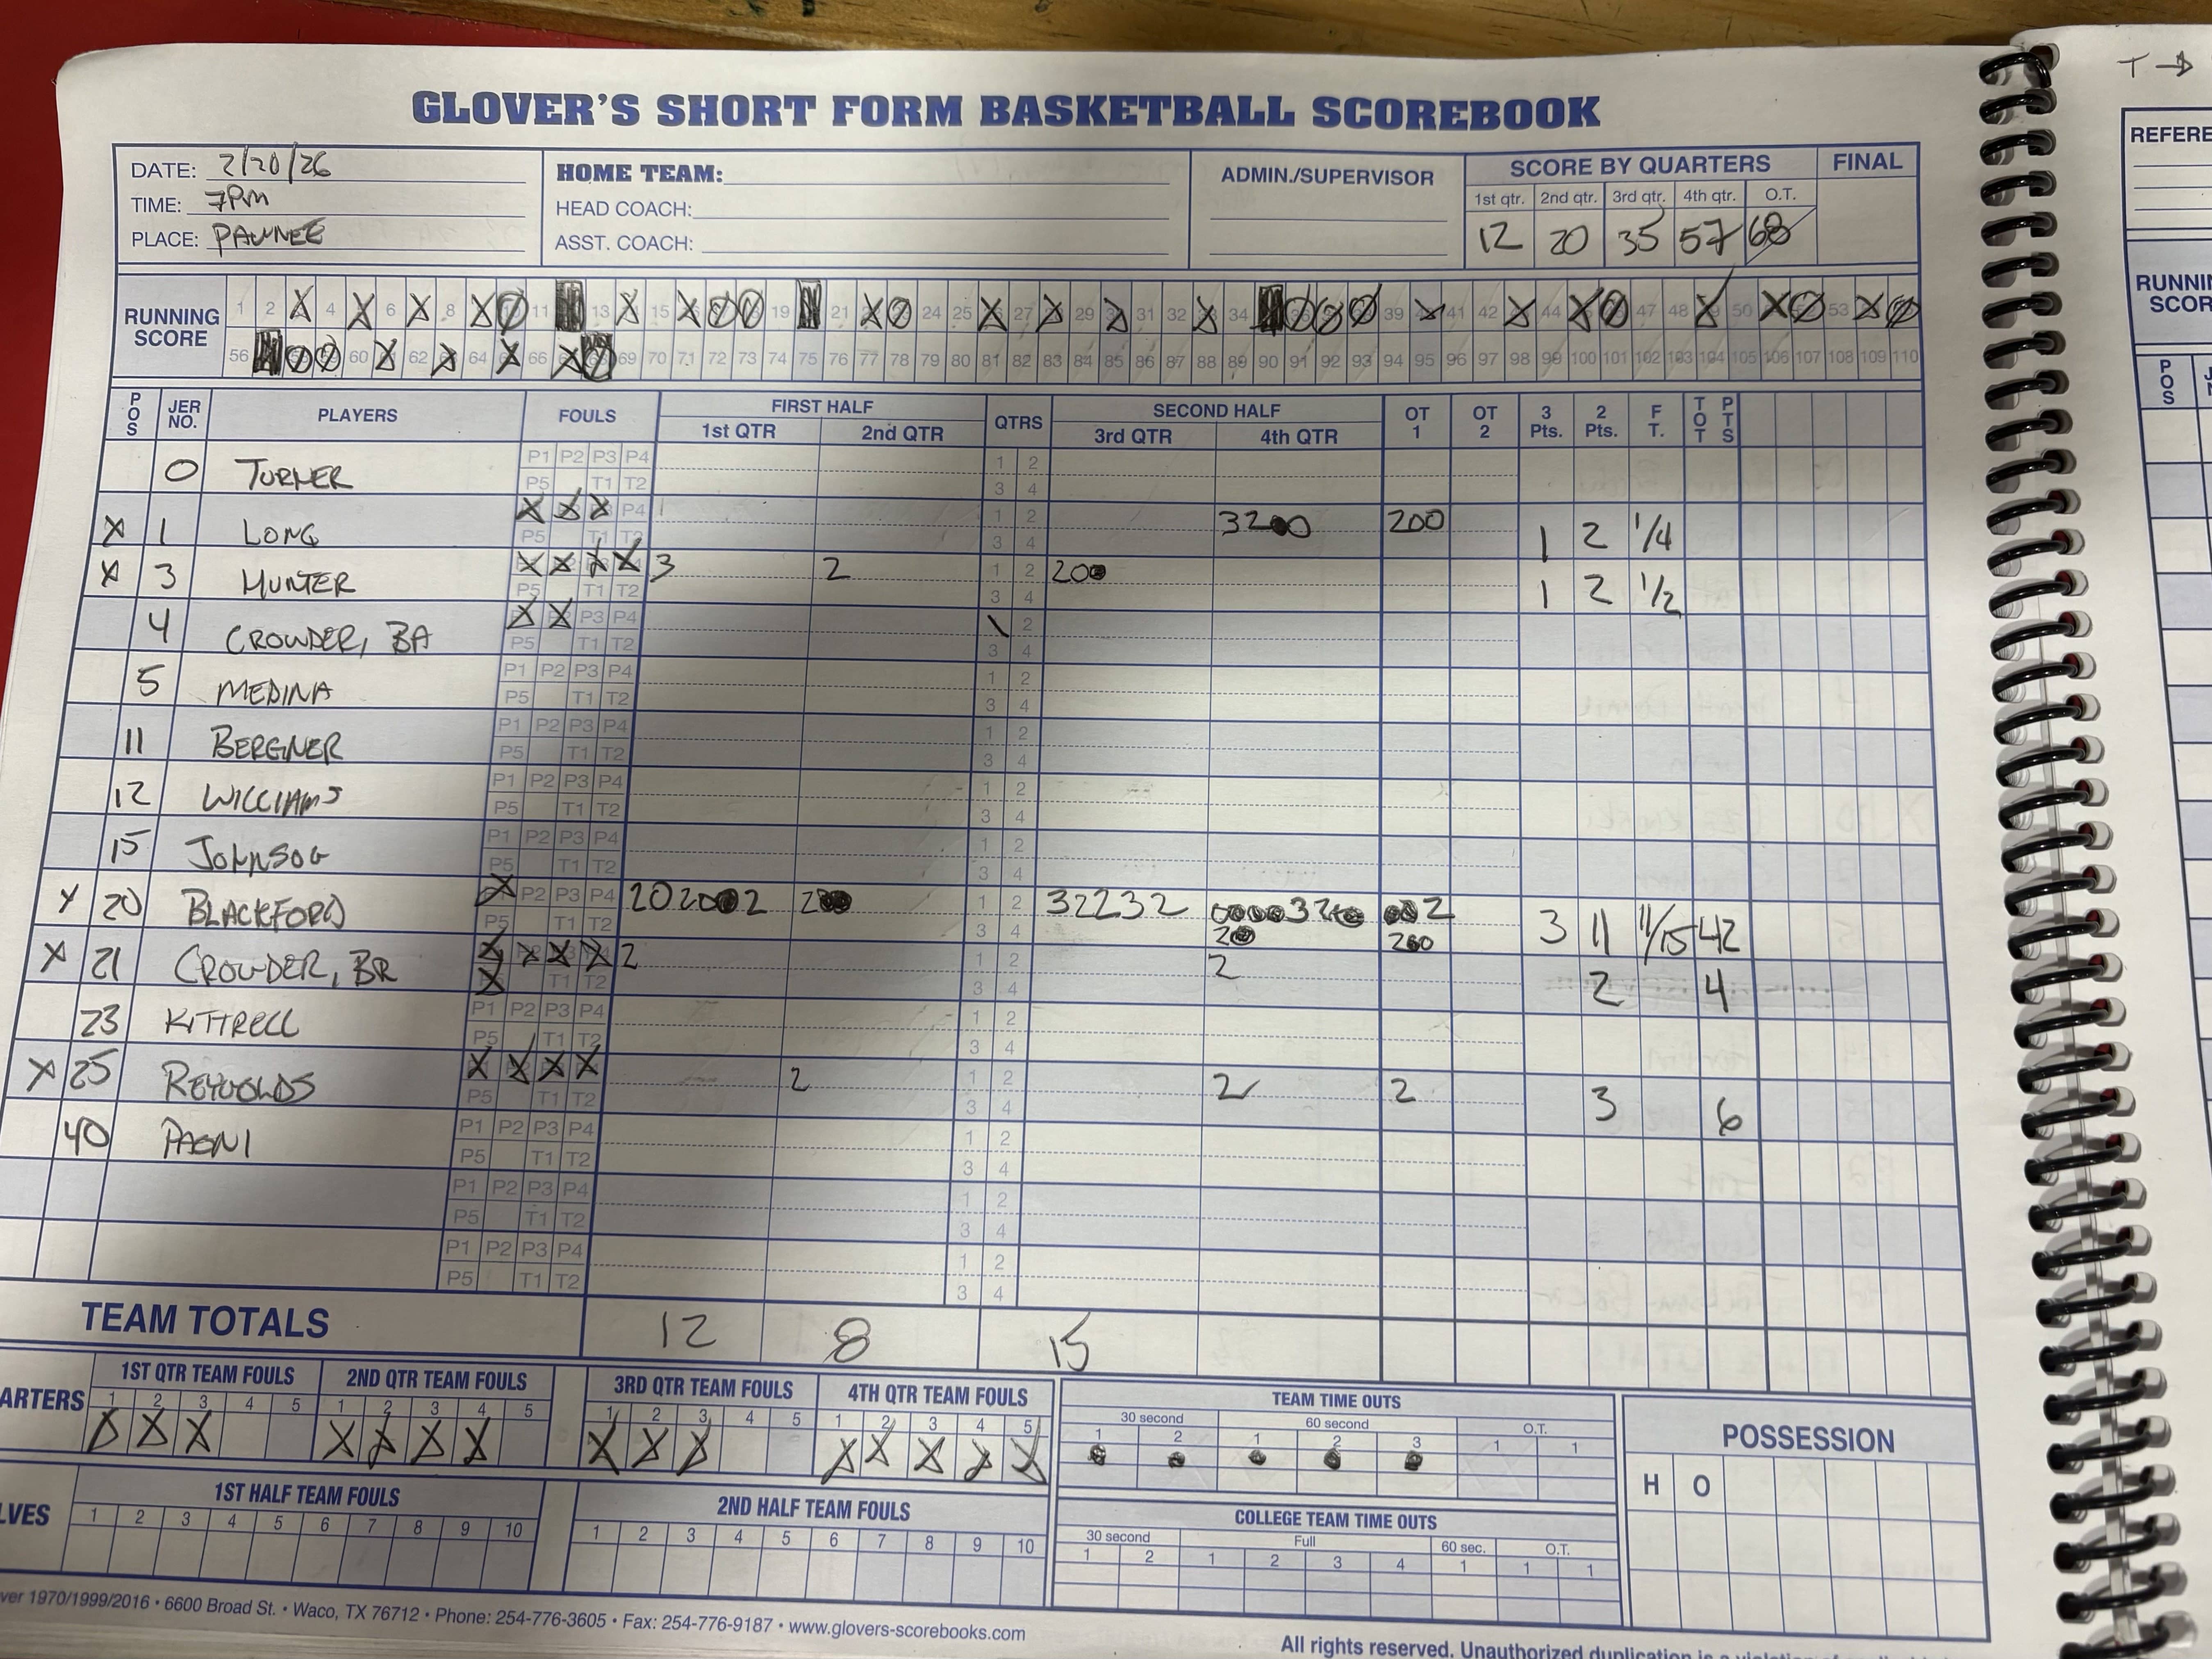 T →
GLOVER'S SHORT FORM BASKETBALL SCOREBOOK
DATE: 2/20/26
TIME: 7PM
PLACE: PAWNEE
HOME TEAM:
HEAD COACH:
ASST. COACH:
ADMIN./SUPERVISOR
SCORE BY QUARTERS FINAL
1st qtr. 2nd qtr. 3rd qtr. 4th qtr. O.T.
12 20 35 57 68
REFERE
RUNNING SCORE
1 2 4 6 8 11 13 15 19 21 24 25 27 29 31 32 34 39 41 42 44 47 48 50 53
56 60 62 64 66 69 70 71 72 73 74 75 76 77 78 79 80 81 82 83 84 85 86 87 88 89 90 91 92 93 94 95 96 97 98 99 100 101 102 103 104 105 106 107 108 109 110
RUNNIN
SCOR
POS JER NO. PLAYERS FOULS FIRST HALF QTRS SECOND HALF OT 1 OT 2 3 Pts. 2 Pts. F T. TOT PTS
1st QTR 2nd QTR 3rd QTR 4th QTR
POS
0 TURNER P1 P2 P3 P4 1 2
P5 T1 T2 3 4
X 1 LONG X X X P4 1 2 320 200 1 2 1/4
P5 T1 T2 3 4
X 3 HUNTER X X X X 3 2 1 2 20 1 2 1/2
P5 T1 T2 3 4
4 CROWDER, BA X X P3 P4 2
P5 T1 T2 3 4
5 MEDINA P1 P2 P3 P4 1 2
P5 T1 T2 3 4
11 BERGNER P1 P2 P3 P4 1 2
P5 T1 T2 3 4
12 WILLIAMS P1 P2 P3 P4 1 2
P5 T1 T2 3 4
15 JOHNSON P1 P2 P3 P4 1 2
P5 T1 T2 3 4
X 20 BLACKFORD X P2 P3 P4 1 2 32232 3 11 11/15 42
P5 T1 T2 3 4
X 21 CROWDER, BR X X X X 2 1 2 2 2 4
X T1 T2 3 4
23 KITTRELL P1 P2 P3 P4 1 2
P5 T1 T2 3 4
X 25 REYNOLDS X X X X 2 1 2 2 2 3 6
P5 T1 T2 3 4
40 PAGNI P1 P2 P3 P4 1 2
P5 T1 T2 3 4
P1 P2 P3 P4 1 2
P5 T1 T2 3 4
P1 P2 P3 P4 1 2
P5 T1 T2 3 4
TEAM TOTALS 12 8 15
ARTERS 1ST QTR TEAM FOULS 2ND QTR TEAM FOULS 3RD QTR TEAM FOULS 4TH QTR TEAM FOULS
1 2 3 4 5 1 2 3 4 5 1 2 3 4 5 1 2 3 4 5
X X X X X X X X X X X X X X X
TEAM TIME OUTS
30 second 60 second O.T.
1 2 1 2 3 1 1
POSSESSION
H O
LVES 1ST HALF TEAM FOULS 2ND HALF TEAM FOULS
1 2 3 4 5 6 7 8 9 10 1 2 3 4 5 6 7 8 9 10
COLLEGE TEAM TIME OUTS
30 second Full 60 sec. O.T.
1 2 1 2 3 4 1 1 1
ver 1970/1999/2016 • 6600 Broad St. • Waco, TX 76712 • Phone: 254-776-3605 • Fax: 254-776-9187 • www.glovers-scorebooks.com
All rights reserved. Unauthorized duplication is a